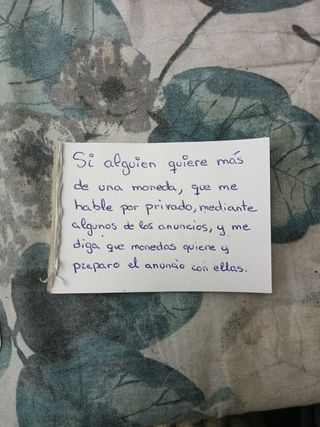 Si alguien quiere más
de una moneda, que me
hable por privado, mediante
algunos de los anuncios, y me
diga que monedas quiere y
preparo el anuncio con ellas.